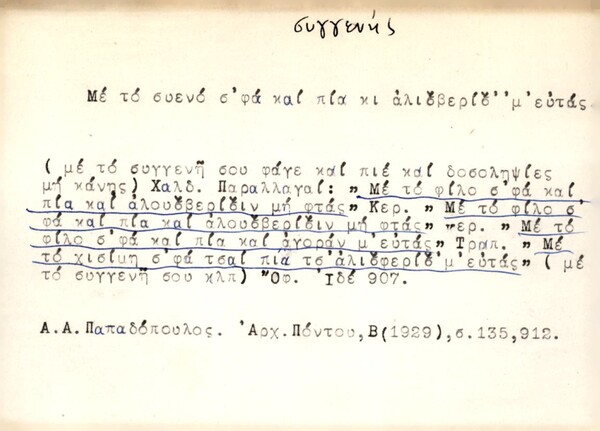 συγγενής
Μέ τό συενό σ'φά καί πία κι ἀλισβερίσ' 'μ'εὐτάς
( μέ τό συγγενῆ σου φάγε καί πιέ καί δοσοληψίες
μή κάνης) Χαλδ. Παραλλαγαί: „ Μέ τό φίλο σ'φά καί
πία καί ἀλουσβερίσιν μή φτάς„ Κερ. „ Μέ τό φίλο σ'
φά καί πία καί ἀλουσβερίσιν μή φτάς„ "ερ. „ Μέ τό
φίλο σ'φά καί πία καί ἀγοράν μ'εὐτάς„ Τραπ. „ Μέ
τό χισίμη σ'φά τσαί πία τσ'ἀλισφερίσ'μ'εὐτάς„ ( μέ
τό συγγενῆ σου κλπ) Ὄφ. Ἰδέ 907.
Α.Α.Παπαδόπουλος. Ἀρχ.Πόντου,Β(1929),σ.135,912.